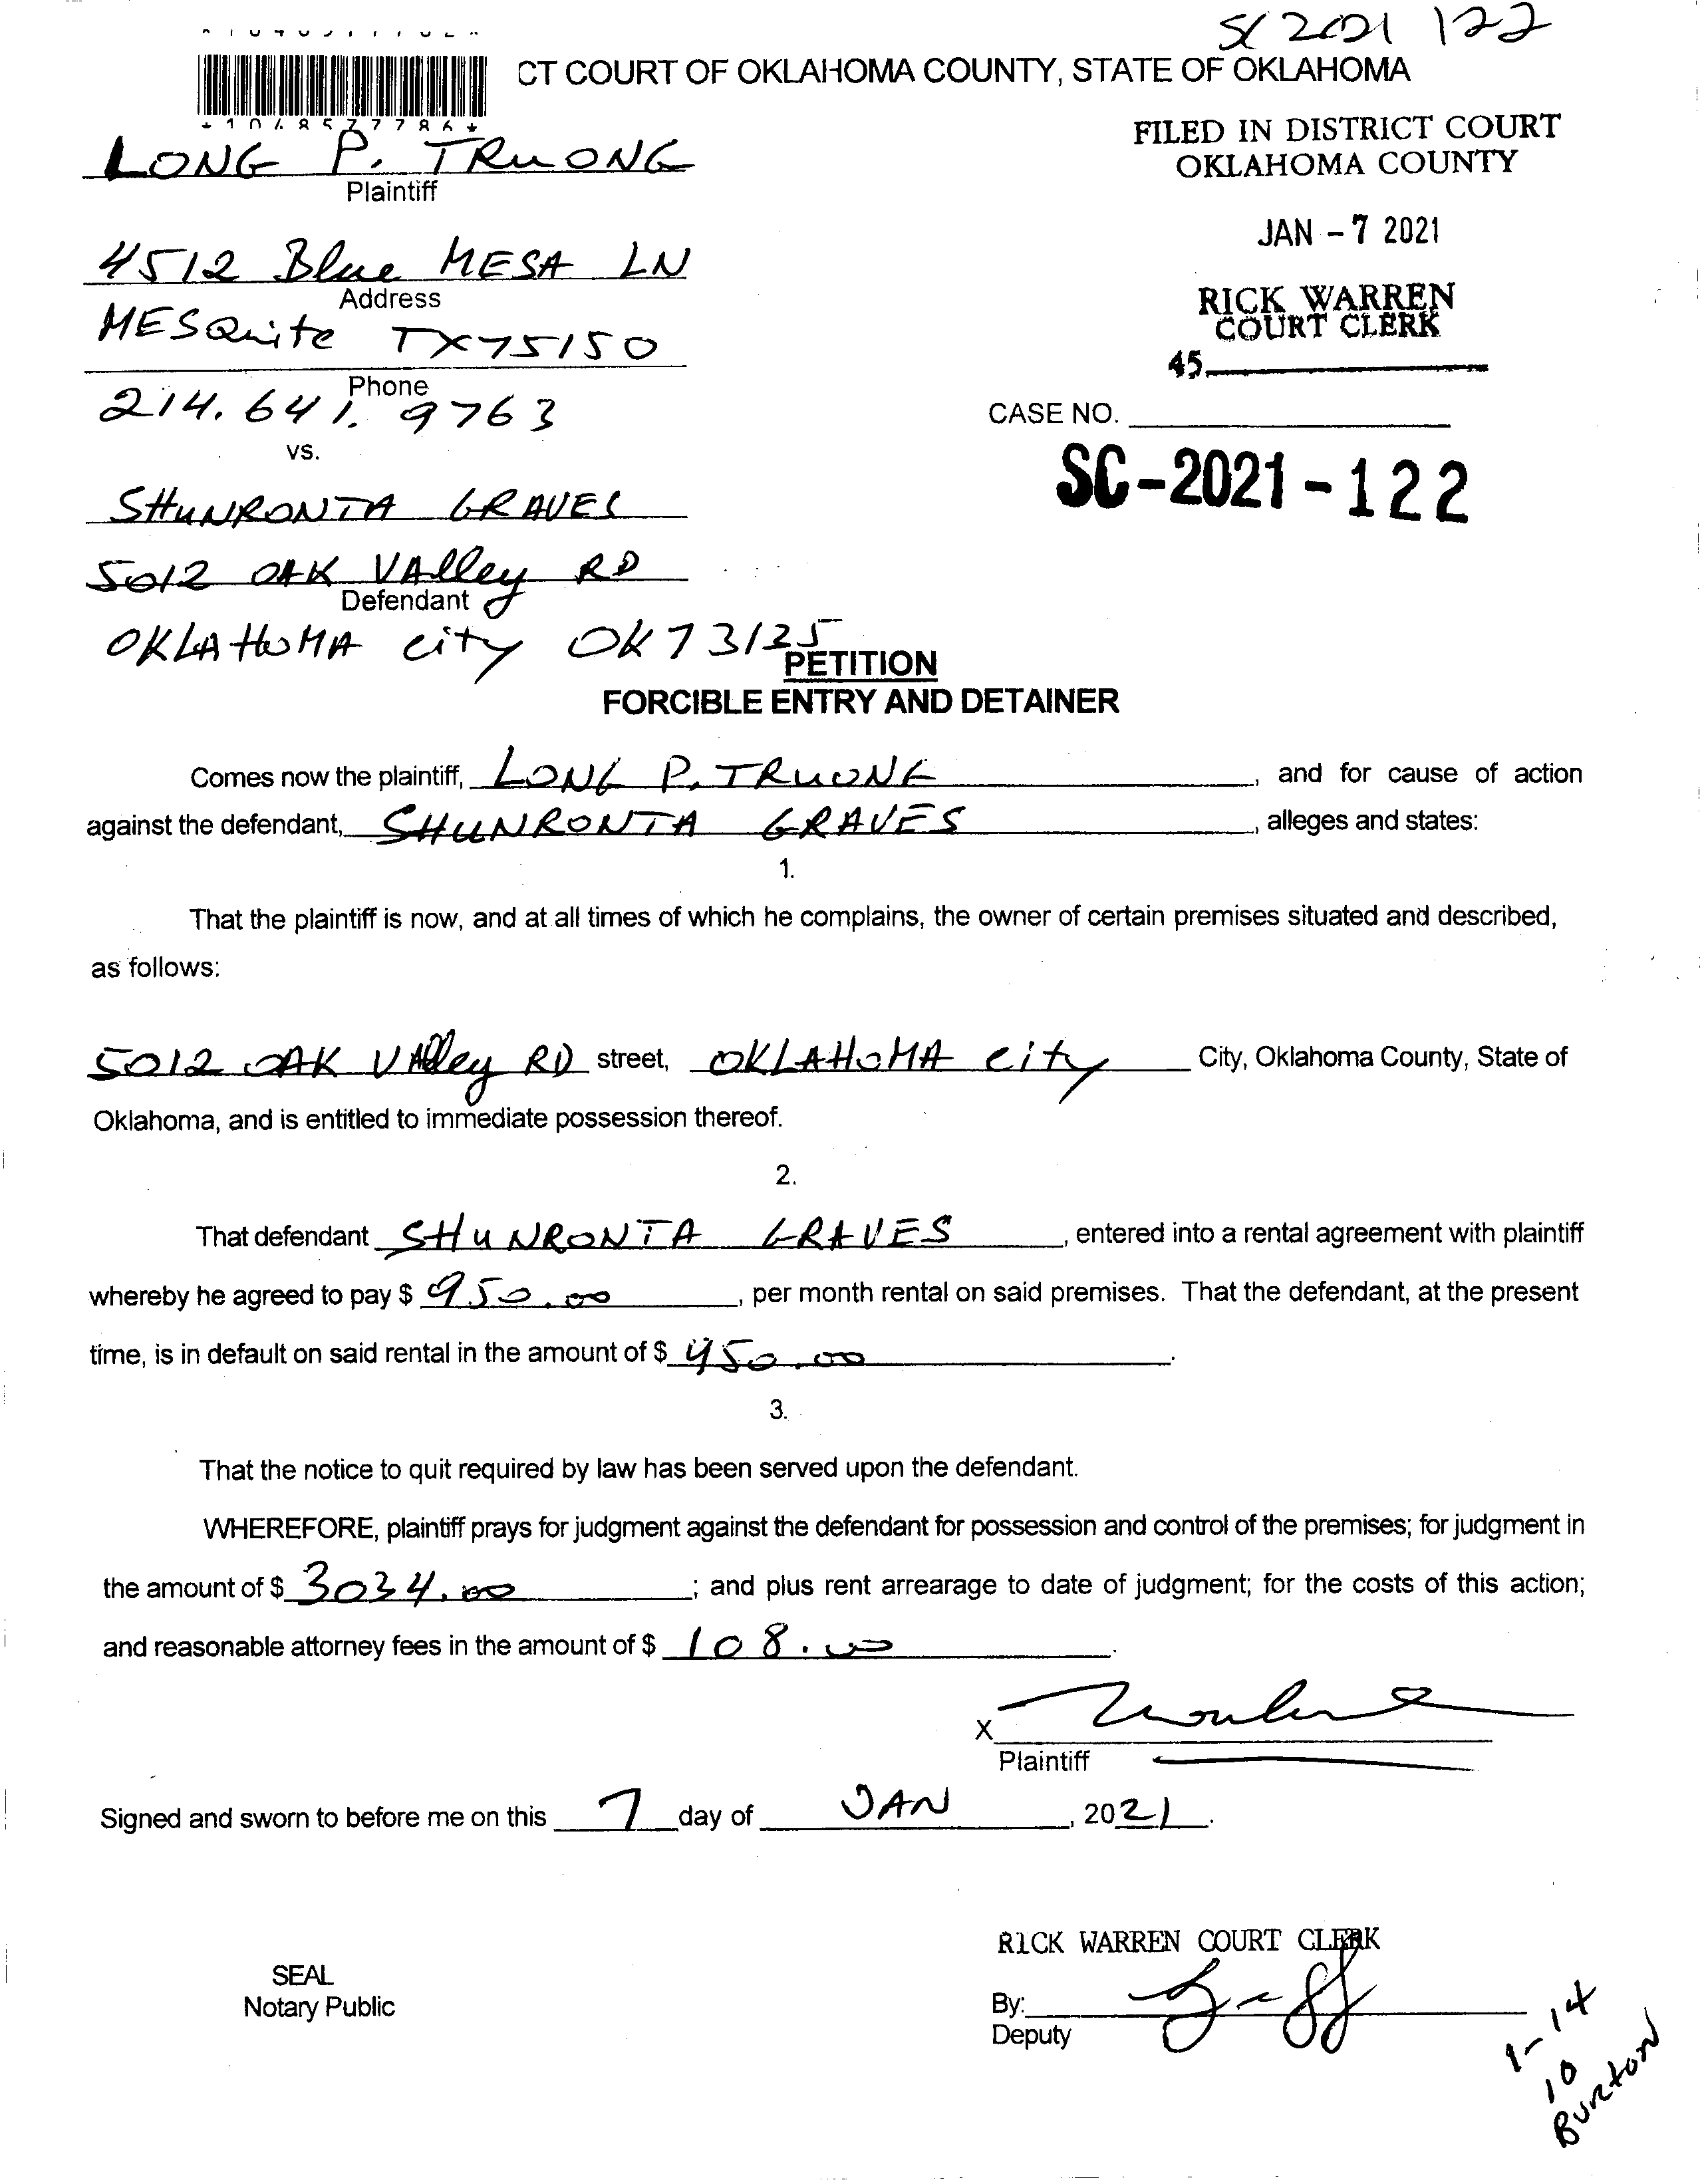 SC 2021 122
CT COURT OF OKLAHOMA COUNTY, STATE OF OKLAHOMA
*1048577786*
FILED IN DISTRICT COURT
OKLAHOMA COUNTY
JAN - 7 2021
RICK WARREN
COURT CLERK
45
LONG P. TRUONG
Plaintiff
4512 Blue MESA LN
Address
MESQuite TX 75150
Phone
214. 641. 9763
vs.
CASE NO.
SC-2021-122
SHUNRONTA GRAVES
5012 OAK VAlley RD
Defendant
OKLAHOMA city OK 73125
PETITION
FORCIBLE ENTRY AND DETAINER
Comes now the plaintiff, LONG P. TRUONG, and for cause of action
against the defendant, SHUNRONTA GRAVES, alleges and states:
1.
That the plaintiff is now, and at all times of which he complains, the owner of certain premises situated and described,
as follows:
5012 OAK VAlley RD street, OKLAHOMA city City, Oklahoma County, State of
Oklahoma, and is entitled to immediate possession thereof.
2.
That defendant SHUNRONTA GRAVES, entered into a rental agreement with plaintiff
whereby he agreed to pay $ 950.00, per month rental on said premises. That the defendant, at the present
time, is in default on said rental in the amount of $ 450.00.
3.
That the notice to quit required by law has been served upon the defendant.
WHEREFORE, plaintiff prays for judgment against the defendant for possession and control of the premises; for judgment in
the amount of $ 3034.00; and plus rent arrearage to date of judgment; for the costs of this action;
and reasonable attorney fees in the amount of $ 108.00.
X
Plaintiff
Signed and sworn to before me on this 7 day of JAN, 2021.
RICK WARREN COURT CLERK
SEAL
Notary Public
By:
Deputy
1-14
10
Burton